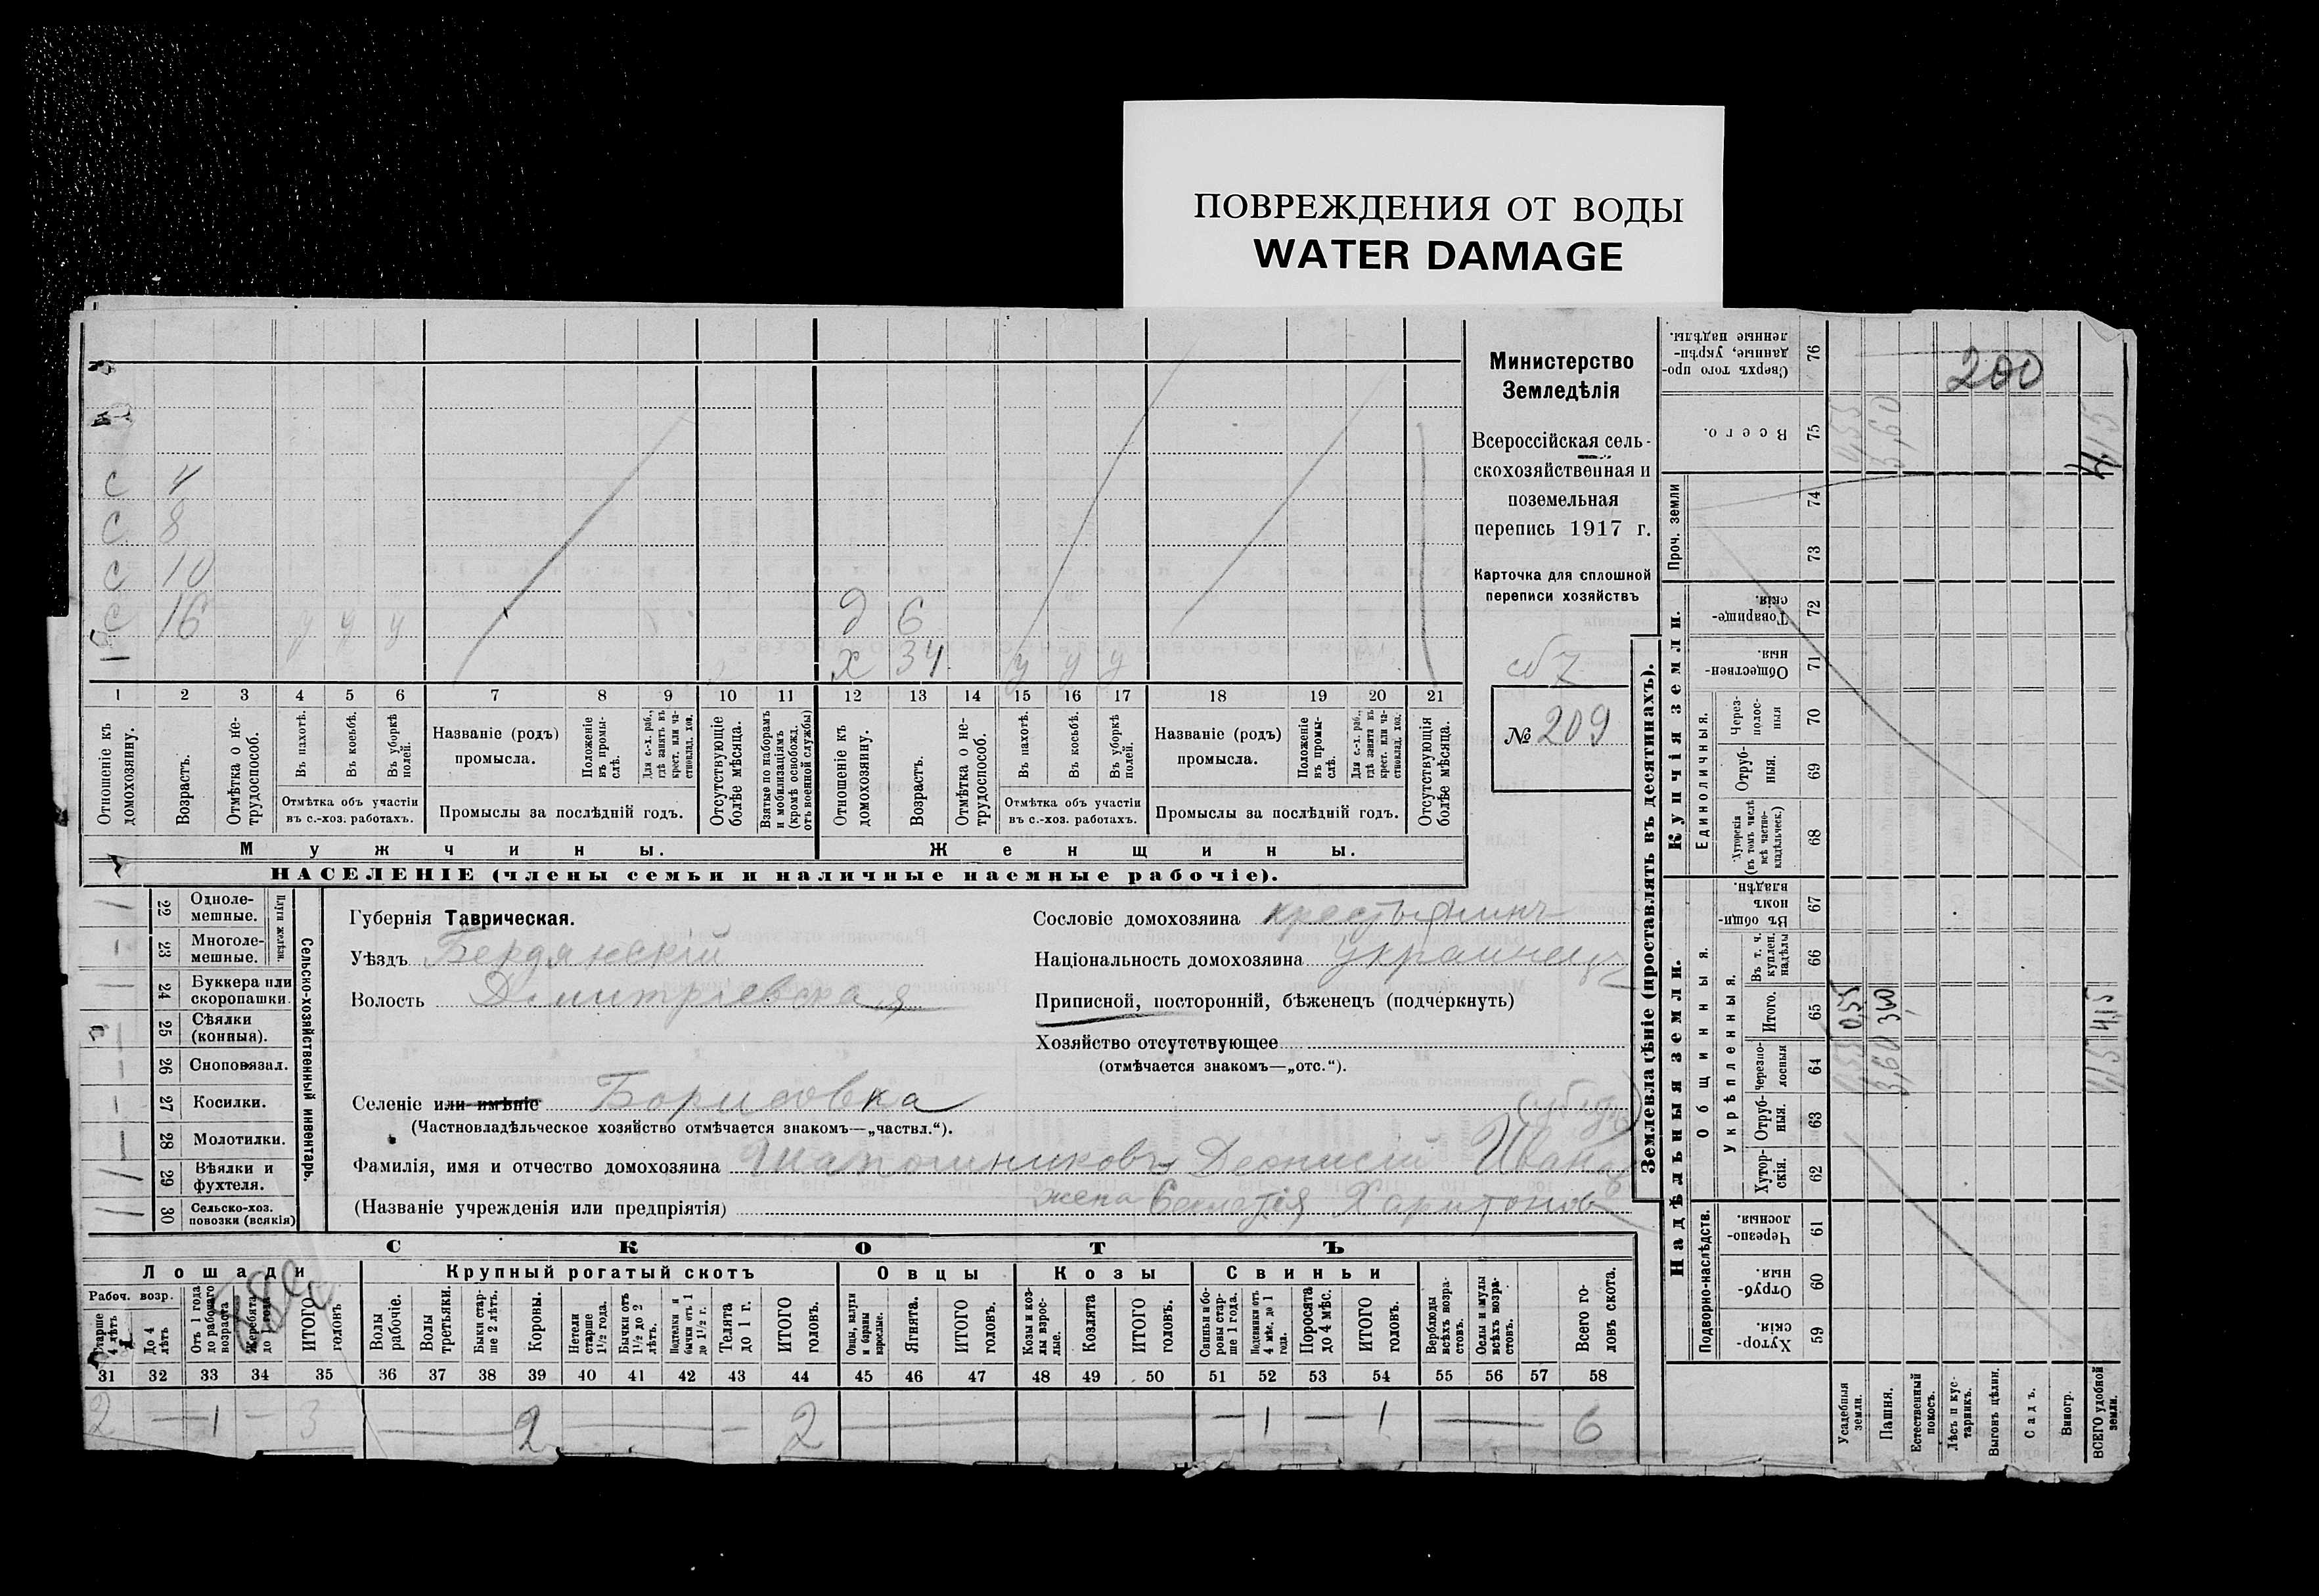 ПОВРЕЖДЕНИЯ ОТ ВОДЫ
WATER DAMAGE
с 4
с 8
с 10
с 16 у у у
д 6
х 34 у у у
1 2 3 4 5 6 7 8 9 10 11 12 13 14 15 16 17 18 19 20 21
Отношеніе къ домохозяину.
Возрастъ.
Отмѣтка о нетрудоспособ.
Въ пахотѣ.
Въ косьбѣ.
Въ уборкѣ полей.
Отмѣтка объ участіи въ с.-хоз. работахъ.
Названіе (родъ) промысла.
Положеніе въ промыслѣ.
Для с.-х. раб., гдѣ занятъ въ крест. или частновлад. хоз.
Промыслы за послѣдній годъ.
Отсутствующіе болѣе мѣсяца.
Взятые по наборамъ и мобилизаціямъ (кромѣ освобожд. отъ военной службы)
Отношеніе къ домохозяину.
Возрастъ.
Отмѣтка о нетрудоспособ.
Въ пахотѣ.
Въ косьбѣ.
Въ уборкѣ полей.
Отмѣтка объ участіи въ с.-хоз. работахъ.
Названіе (родъ) промысла.
Положеніе въ промыслѣ.
Для с.-х. раб., гдѣ занята въ крест. или частновлад. хоз.
Промыслы за послѣдній годъ.
Отсутствующія болѣе мѣсяца.
Мужчины.
Женщины.
НАСЕЛЕНІЕ (члены семьи и наличные наемные рабочіе).
Министерство
Земледѣлія
Всероссійская сель-
скохозяйственная и
поземельная
перепись 1917 г.
Карточка для сплошной
переписи хозяйствъ
№ 209
22 Одноле-мешные.
23 Многоле-мешные.
Плуги желѣзн.
24 Буккера или скоропашки.
25 Сѣялки (конныя).
26 Сноповязал.
27 Косилки.
28 Молотилки.
29 Вѣялки и фухтеля.
30 Сельско-хоз. повозки (всякія)
Сельско-хозяйственный инвентарь.
Губернія Таврическая.
Уѣздъ Бердянскій
Волость Димитріевская
Селеніе или имѣніе Борисовка
(Частновладѣльческое хозяйство отмѣчается знакомъ—„частвл.“).
Фамилія, имя и отчество домохозяина Шапошниковъ Деонисій Иван
(Названіе учрежденія или предпріятія) жена Харитонов
Сословіе домохозяина крестьянинъ
Національность домохозяина украинецъ
Приписной, посторонній, бѣженецъ (подчеркнуть)
Хозяйство отсутствующее
(отмѣчается знакомъ—„отс.“).
СКОТЪ
Лошади
Крупный рогатый скотъ
Овцы
Козы
Свиньи
Рабоч. возр.
Старше 4 лѣтъ
До 4 лѣтъ
Отъ 1 года до рабочаго возраста
Жеребята до 1 года
ИТОГО головъ
Волы рабочіе.
Волы третьяки.
Быки старше 2 лѣтъ.
Коровы.
Нетели старше 1½ года.
Бычки отъ 1½ до 2 лѣтъ.
Подтелки и бычки отъ 1 до 1½ г.
Телята до 1 г.
ИТОГО головъ.
Овцы, валухи и бараны взрослые.
Ягнята.
ИТОГО головъ.
Козы и козлы взрослые.
Козлята
ИТОГО головъ.
Свиньи и боровы старше 1 года.
Подсвинки отъ 4 мѣс. до 1 года.
Поросята до 4 мѣс.
ИТОГО головъ.
Верблюды всѣхъ возрастовъ.
Ослы и мулы всѣхъ возрастовъ.
Всего головъ скота.
31 32 33 34 35 36 37 38 39 40 41 42 43 44 45 46 47 48 49 50 51 52 53 54 55 56 57 58
2 — 1 — 3 — 2 — 2 — 1 — 1 — 6
Землевладѣніе (проставлять въ десятинахъ).
Надѣльныя земли.
Купчія земли.
Подворно-наслѣдств.
Общинныя.
Укрѣпленныя.
Единоличныя.
Проч. земли
Сверхъ того проданные, укрѣпленные надѣлы. 76
Всего. 75
74
73
Товарищескія. 72
Общественныя. 71
Черезполосныя 70
Отрубныя. 69
Хуторскія (въ томъ числѣ всѣ частновладѣльческ.) 68
Въ общиномъ владѣн. 67
Въ т. ч. куплен. надѣлы 66
Итого. 65
Черезполосныя 64
Отрубныя. 63
Хуторскія. 62
Черезполосныя. 61
Отрубныя. 60
Хуторскія. 59
Усадебныя земли.
Пашня.
Естественный покосъ.
Лѣсъ и кустарникъ.
Выгонъ цѣлин.
Садъ.
Виногр.
ВСЕГО удобной земли.
200
0,55
3,60
4,15
4,15